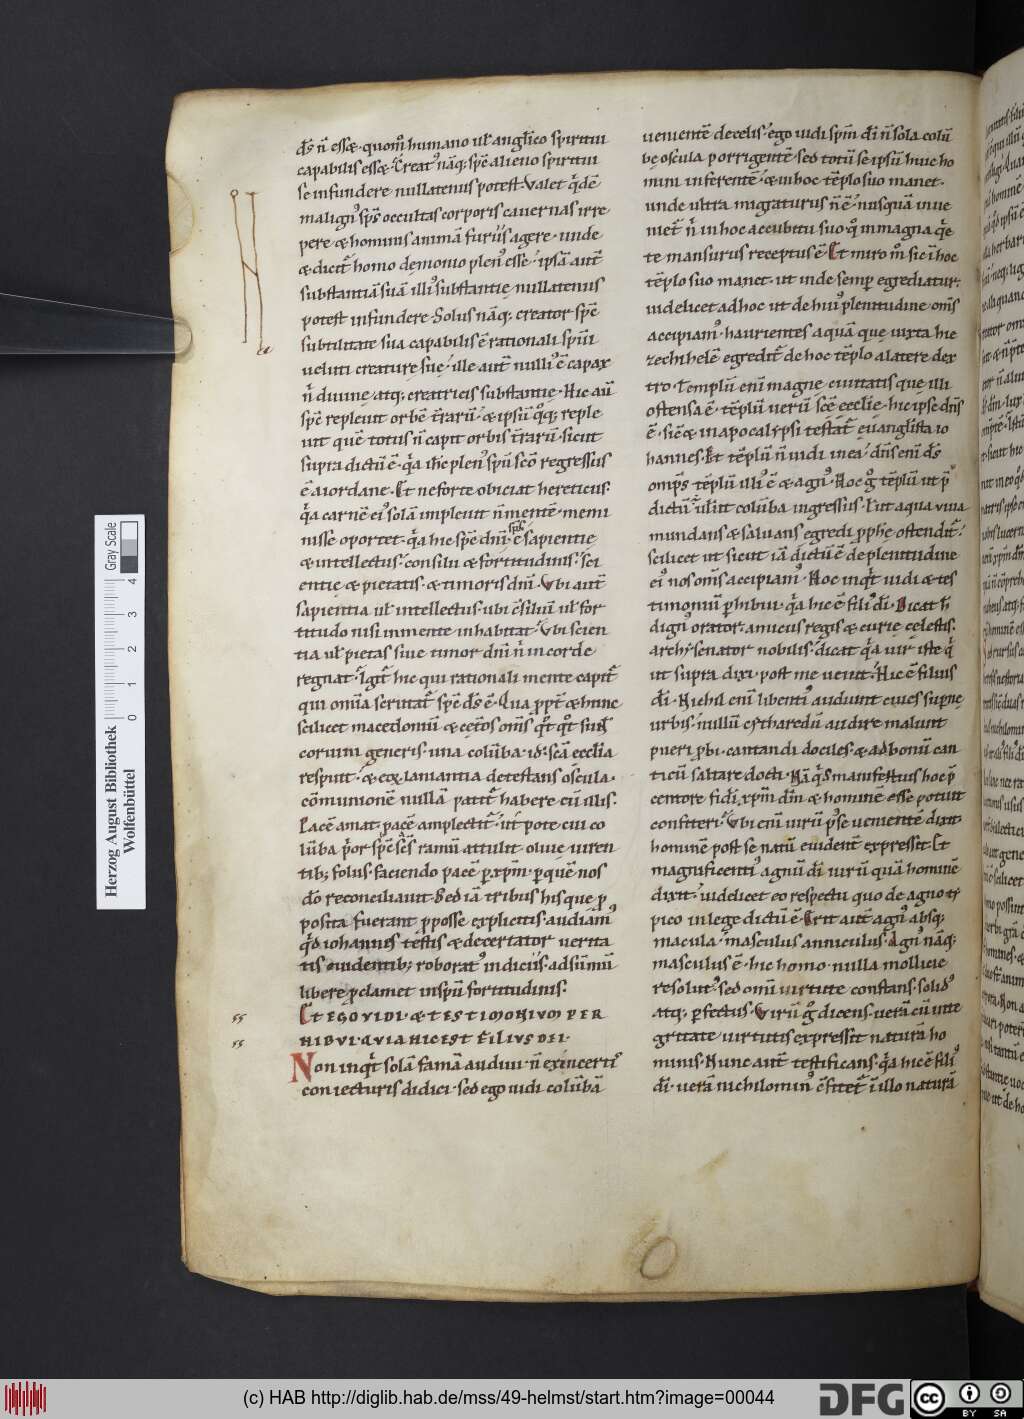 d̄s n̄ essæ · quom̊ humano ul̄ anglico spiritui
capabilis essæ · Creat' nāq; sp̄e alieno spiritui
se infundere nullatenus potest · Valet q̄dē
malign' sp̄s occultas corporis cavernas irre
pere & hominis animā furiis agere · unde
& dicit̄ homo demonio plen' esse · ipsā aut̄
substantiā suā illi' substantię nullatenus
potest infundere · Solus nāq; creator sp̄e
subtilitate sua capabilis ē rationali sp̄ui
ueluti creature suę · ille aut̄ nulli' ē capax
n̄ diuinę atq; creatricis substantię · Hic aut̄
sp̄e repleuit orbē t̄rarū · & ipsū q̊q; reple
uit quē totus n̄ capit orbis t̄rarū · sicut
supra dictū ē · q̄a ih̄c plen' sp̄u sc̄o regressus
ē a iordane · Et ne forte obiciat hereticus
q̄a carnē ei' solā impleuit n̄ mentē · memi
nisse oportet · q̄a hic sp̄e dn̄i sp̄s ē sapientię
& intellectus · consilii & fortitudinis · sci
entię & pietatis · & timoris dn̄i · Vbi aut̄
sapientia ul̄ intellectus · ubi c̄siliū ul̄ for
titudo nisi in mente inhabitat · Vbi scien
tia ul̄ pietas siue timor dn̄i n̄ in corde
regnat · Igit̄ hic qui rationali mente capit̄
qui omīa scrutat̄ sp̄e d̄s ē · Qua ppt̄ & hunc
scilicet macedoniū & cęt̄os om̄s
corum generis · una colūba · id ē scā ecclīa
respuit · & ex laniantia detestans oscula ·
cōmunionē nullā patit̄ habere cū illis ·
Pacē amat · pacē amplectit̄ · ut pote cui co
lūba p̄or sp̄e sc̄s ramū attulit oliuę uiren
tib; foliis · faciendo pacē p xp̄m · p quē nos
d̄o reconciliauit · Sed iā tribus his que p
posita fuerant p posse explicitis · audiam'
q̄d iohannes testis & decertator uerita
tis euidentib; roborat' indiciis · ad sūmū
libere p̄clamet in sp̄u fortitudinis ·
ET EGO VIDI · & TESTIMONIVM PER
HIBVI · QVIA HIC EST FILIVS DEI ·
Non inq̄t solā famā audiui · n̄ ex incerti'
coniecturis didici · sed ego uidi colūbā
uenientē de celis · ego uidi sp̄m d̄i n̄ sola colū
bę oscula porrigentē · sed totū se ipsū huic ho
mini inferentē · & in hoc tēplo suo manet ·
unde ultra migraturus n̄ ē · nusquā inue
niet̄ n̄ in hoc accubitu suo q̊ in magna q̄e
te mansurus receptus ē · Et miro m̊ sic ī hoc
tēplo suo manet · ut inde semp egrediatur ·
uidelicet ad hoc ut de hui' plenitudine om̄s
accipiam' · haurientes aquā que iuxta hie
zechihelē egredit̄ de hoc tēplo a latere dex
tro · Templū eni magne ciuitatis que illi
ostensa ē · tēplū uerū sc̄e ecclię · hic ipse dn̄s
ē · sic̄ & in apocalypsi testat̄ euanglista io
hannes · Et tēplū n̄ uidi in ea · dn̄s eni d̄s
omp̄s tēplū illi' ē & agn' · Hoc g̊ tēplū ut p̄
dictū colūba ingressus · Fit ut aqua uiua
mundans & saluans egredi p pph̄ę ostendit̄ ·
scilicet ut sicut iā dictū ē de plenitudine
ei' nos om̄s accipiam' · Hoc inq̄t uidi & tes
timoniū p̄hibui · q̄a hic ē fili' d̄i · Dicat h̄
dign' orator · amicus regis & curię cęlestis ·
archy senator nobilis · dicat q̄a uir iste q̄
ut supra dixi · post me uenit · Hic ē filius
d̄i · Nichil eni libenti' audiunt ciues supnę
urbis · nullū cytharedū audire malunt
pueri p̄bi · cantandi dociles · & ad bonū can
ticū saltare docti · Nā q̊s manifestius hoc p̄
centore fidi · xp̄m dm̄ & hominē esse potuit
confiteri · Vbi eni uirū p̊se uenientē dixit ·
hominē post se natū euident̄ expresset · Et
magnificenti' agnū d̄i uirū quā hominē
dixit · uidelicet eo respectu quo de agno ty
pico in lege dictū ē · Erit aut̄ agn' absq;
macula · masculus anniculus · Agn' nāq;
masculus ē · hic homo · nulla mollicie
resolut' · sed omi uirtute constans · solid'
atq; p̄fectus · Virū g̊ dicens · uerā cū inte
gritate uirtutis expressit naturā ho
minis · Nunc aut̄ testificans · q̄a hic ē fili'
d̄i · uerā nichilomin' c̄fitet̄ ī illo naturā
Herzog August Bibliothek
Wolfenbüttel
0 1 2 3 4
Gray Scale
(c) HAB http://diglib.hab.de/mss/49-helmst/start.htm?image=00044
DFG
cc BY SA